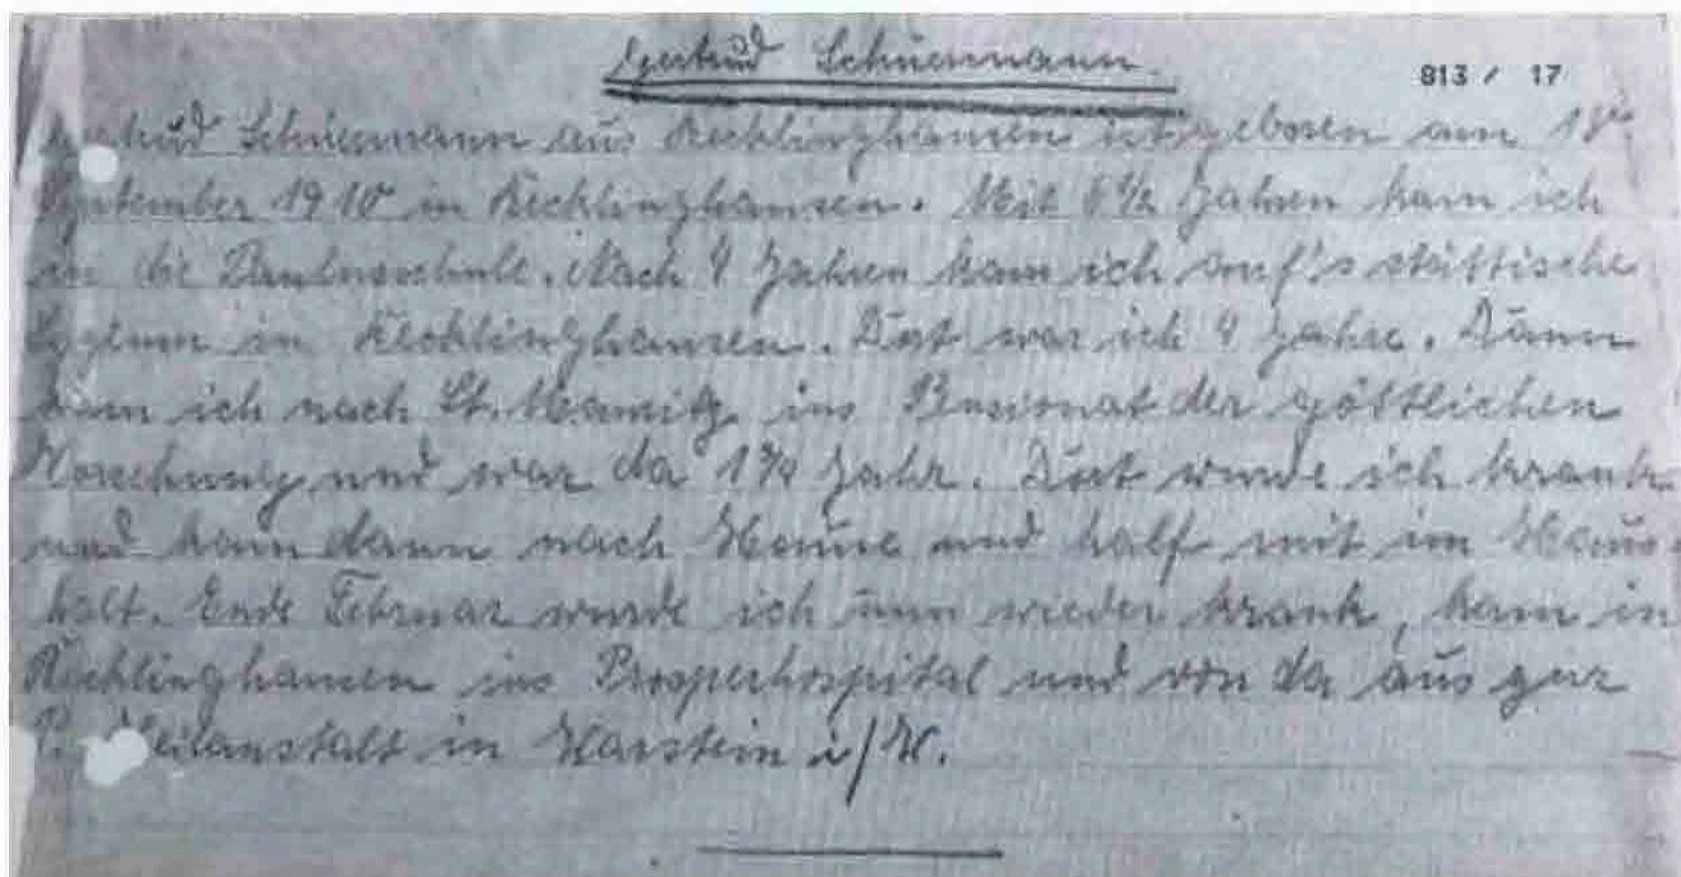 Gertrud Schüermann.
813 / 17
Schüermann aus Recklinghausen ist geboren am
September 1910 in Recklinghausen. Mit 6 1/2 Jahren kam ich
in die Paulusschule. Nach 4 Jahren kam ich auf's städtische
Lyzeum in Recklinghausen. Dort war ich 4 Jahre. Dann
kam ich nach St. Mauritz ins Pensionat der göttlichen
Vorsehung und war da 1 3/4 Jahr. Dort wurde ich krank
und kam dann nach Hause und half mit im Haus-
halt. Ende Februar wurde ich nun wieder krank, kam in
Recklinghausen ins Prosperhospital und von da aus zur
Heilanstalt in Warstein i/W.